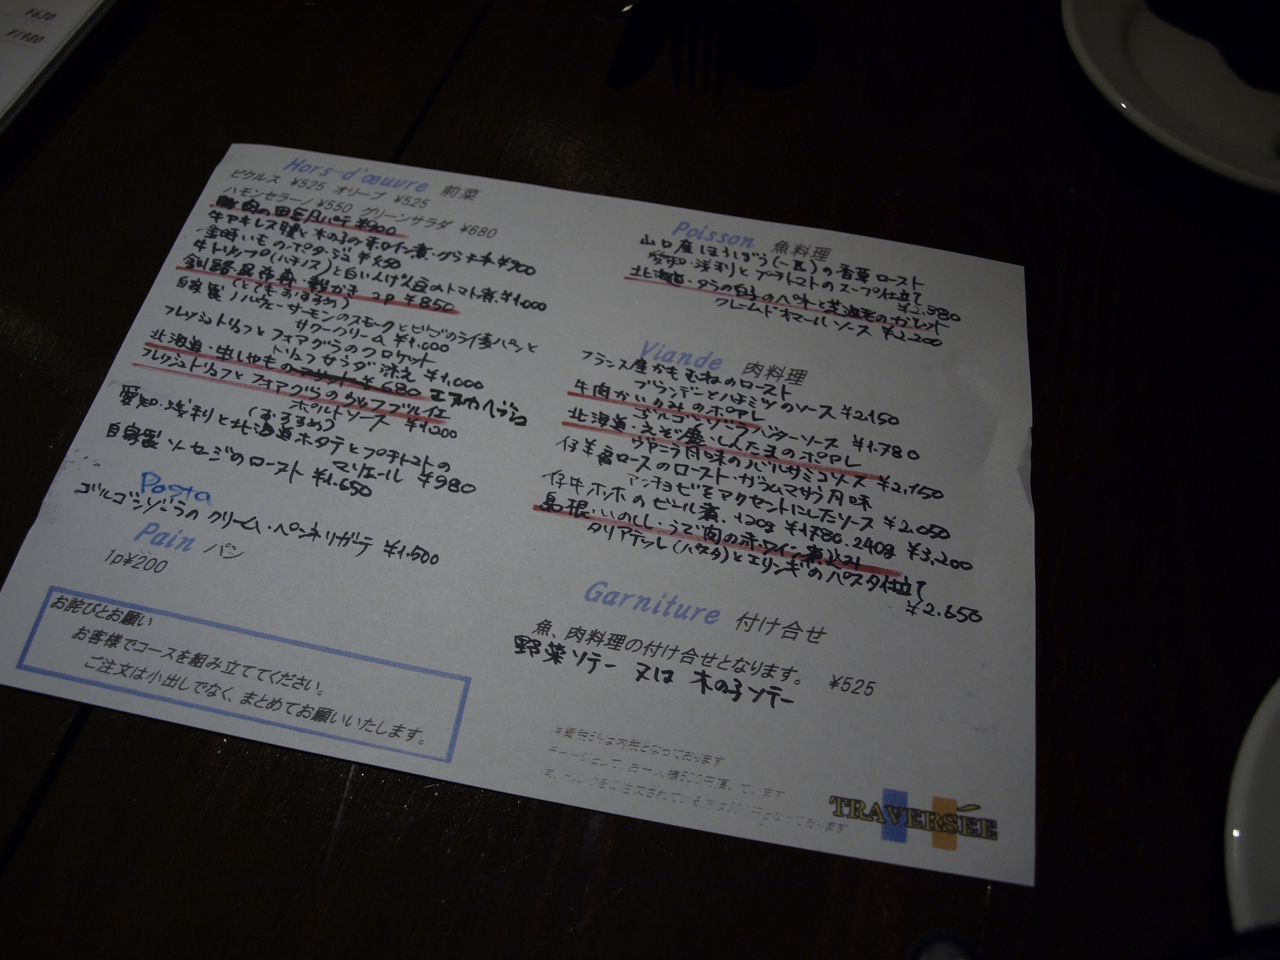 ¥630
¥1980
Hors-d'œuvre 前菜
ピクルス ¥525 オリーブ ¥525
ハモンセラーノ ¥550 グリーンサラダ ¥680
豚肉の田舎風パテ ¥900
牛アキレス腱と木の子の赤ワイン煮・グラタン ¥900
金時いものポタージュ ¥550
牛トリップ(ハチノス)と白いんげん豆のトマト煮 ¥1,000
釧路昆布森・殻かき 2P ¥850
(とてもおすすめ)
自家製ノルウェーサーモンのスモークとビーツのライ麦パンと
サワークリーム ¥1,000
フレッシュトリュフとフォアグラのクロケット
トリュフサラダ添え ¥1,000
北海道・生ししゃもの ¥680 エスカベッシュ
フレッシュトリュフとフォアグラの
ポルトソース ¥1,200
(おすすめ)
愛知・浅利と北海道ホタテとプチトマトの
マリエール ¥980
自家製ソーセージのロースト ¥1,650
Pasta
ゴルゴンゾーラのクリーム・ペンネリガテ ¥1,500
Pain パン
1p¥200
お詫びとお願い
お客様でコースを組み立ててください。
ご注文は小出しでなく、まとめてお願いいたします。
Poisson 魚料理
山口産ほうぼう(一匹)の香草ロースト
愛知・浅利とプチトマトのスープ仕立て
¥2,380
北海道・タラの白子のベニエと芝海老のガレット
クレームドオマールソース ¥2,200
Viande 肉料理
フランス産かもむねのロースト
ブランデーとハチミツのソース ¥2,150
牛肉かいのみのポワレ
ゴルゴンゾーラバターソース ¥1,780
北海道・えぞ鹿・しんたまのポワレ
ヴァニラ風味のバルサミコソース ¥2,150
仔羊肩ロースのロースト・ガラムマサラ風味
アンチョビをアクセントにしたソース ¥2,050
仔牛ホホのビール煮・120g ¥1,780・240g ¥3,200
島根・いのしし・うで肉の赤ワイン煮込み
タリアテッレ(パスタ)とエリンギのパスタ仕立て
¥2,650
Garniture 付け合せ
魚、肉料理の付け合せとなります。 ¥525
野菜ソテー 又は 木の子ソテー
TRAVERSÉE